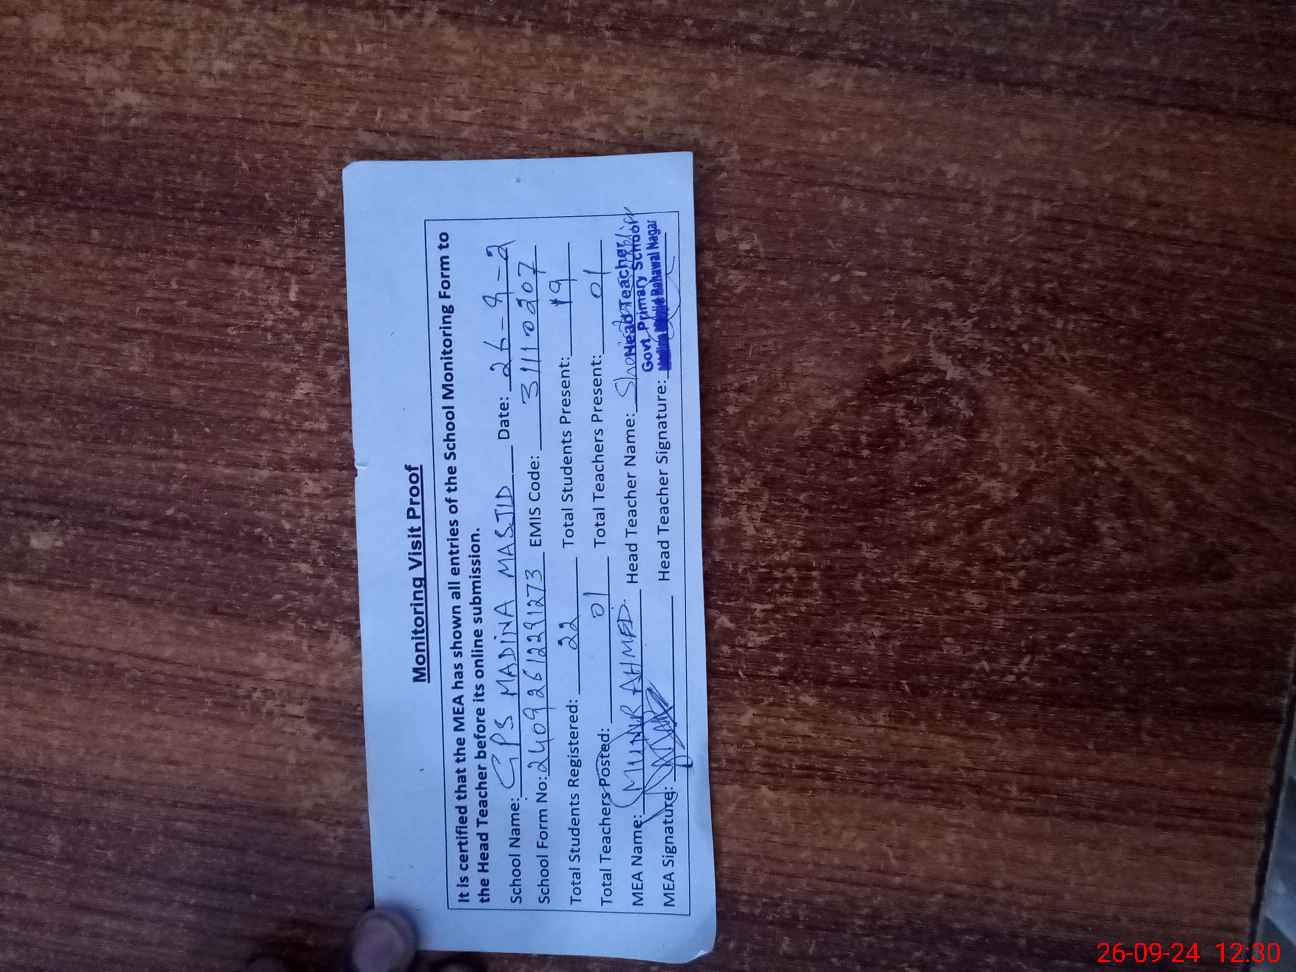 Monitoring Visit Proof
It is certified that the MEA has shown all entries of the School Monitoring Form to
the Head Teacher before its online submission.
School Name: GPS MADINA MASJID Date: 26-9-2
School Form No: 240926122291273 EMIS Code: 31110207
Total Students Registered: 22 Total Students Present: 19
Total Teachers Posted: 01 Total Teachers Present: 01
MEA Name: MUNIR AHMED. Head Teacher Name:
Head Teacher
Govt. Primary School
Bahawal Nagar
MEA Signature: Head Teacher Signature:
26-09-24 12:30